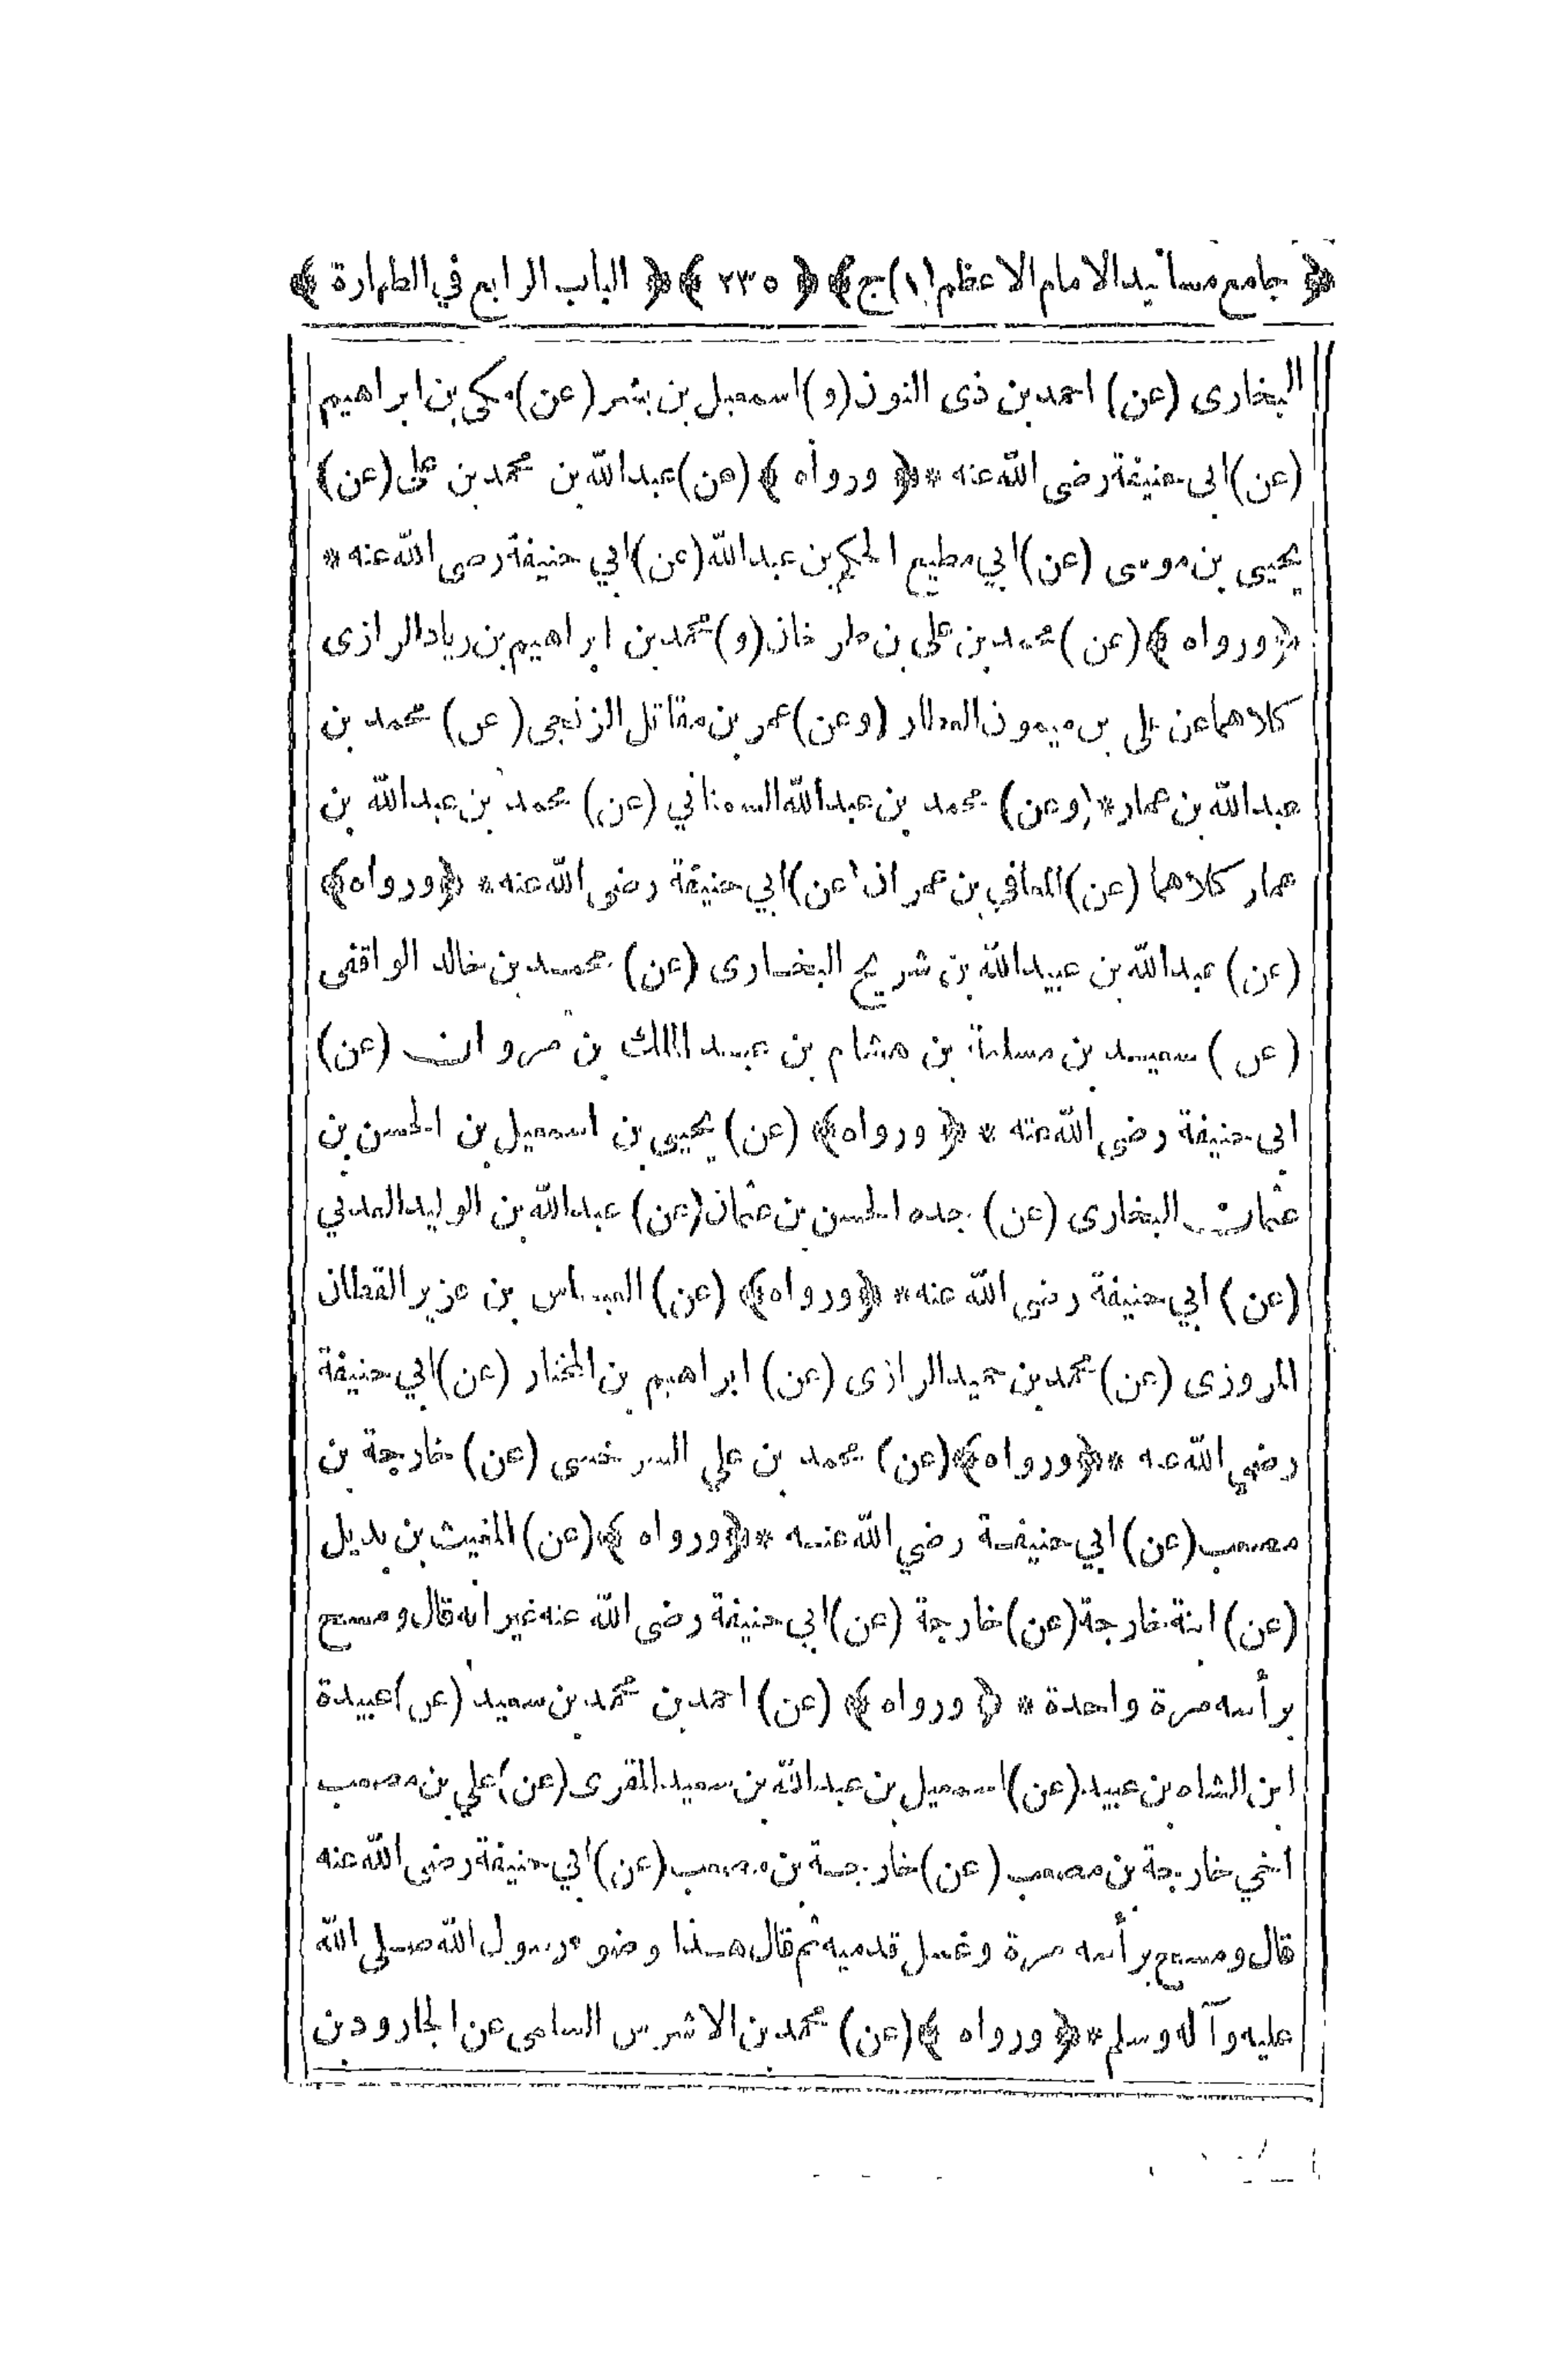 ﴿ جامع مسانيد الامام الاعظم (١) ج ﴾ ﴿ ٢٣٥ ﴾ ﴿ الباب الرابع في الطهارة ﴾
البخارى (عن) احمد بن ذى النون (و) اسمعيل بن بشر (عن) مكى بن ابراهيم
(عن) ابى حنيفة رضى الله عنه * ﴿ ورواه ﴾ (عن) عبدالله بن محمد بن على (عن)
يحيى بن موسى (عن) ابي مطيع الحكم بن عبدالله (عن) ابي حنيفة رضى الله عنه *
﴿ ورواه ﴾ (عن) محمد بن على بن طرخان (و) محمد بن ابراهيم بن زياد الرازى
كلاهما عن على بن ميمون العطار (وعن) عمر بن مقاتل الزنجى (عن) محمد بن
عبدالله بن عمار * (وعن) محمد بن عبدالله السمنانى (عن) محمد بن عبدالله بن
عمار كلاهما (عن) المعافي بن عمران (عن) ابي حنيفة رضى الله عنه * ﴿ ورواه ﴾
(عن) عبدالله بن عبيدالله بن شريح البخارى (عن) محمد بن خالد الواقفى
(عن) سعيد بن مسلمة بن هشام بن عبد الملك بن مروان (عن)
ابى حنيفة رضى الله عنه * ﴿ ورواه ﴾ (عن) يحيى بن اسمعيل بن الحسن بن
عثمان البخارى (عن) جده الحسن بن عثمان (عن) عبدالله بن الوليد العدني
(عن) ابي حنيفة رضى الله عنه * ﴿ ورواه ﴾ (عن) العباس بن عزير القطان
المروزى (عن) محمد بن حميد الرازى (عن) ابراهيم بن المختار (عن) ابي حنيفة
رضي الله عنه * ﴿ ورواه ﴾ (عن) محمد بن علي السرخسى (عن) خارجة بن
مصعب (عن) ابي حنيفة رضي الله عنه * ﴿ ورواه ﴾ (عن) المغيث بن بديل
(عن) ابنة خارجة (عن) خارجة (عن) ابي حنيفة رضى الله عنه غير انه قال ومسح
برأسه مرة واحدة * ﴿ ورواه ﴾ (عن) احمد بن محمد بن سعيد (عن) عبيدة
ابن الشاه بن عبيد (عن) اسمعيل بن عبدالله بن سعيد المقرى (عن) علي بن مصعب
اخي خارجة بن مصعب (عن) خارجة بن مصعب (عن) ابي حنيفة رضى الله عنه
قال ومسح برأسه مرة وغسل قدميه ثم قال هذا وضوء رسول الله صلى الله
عليه وآله وسلم * ﴿ ورواه ﴾ (عن) محمد بن الاشرس السلمى عن الجارود بن